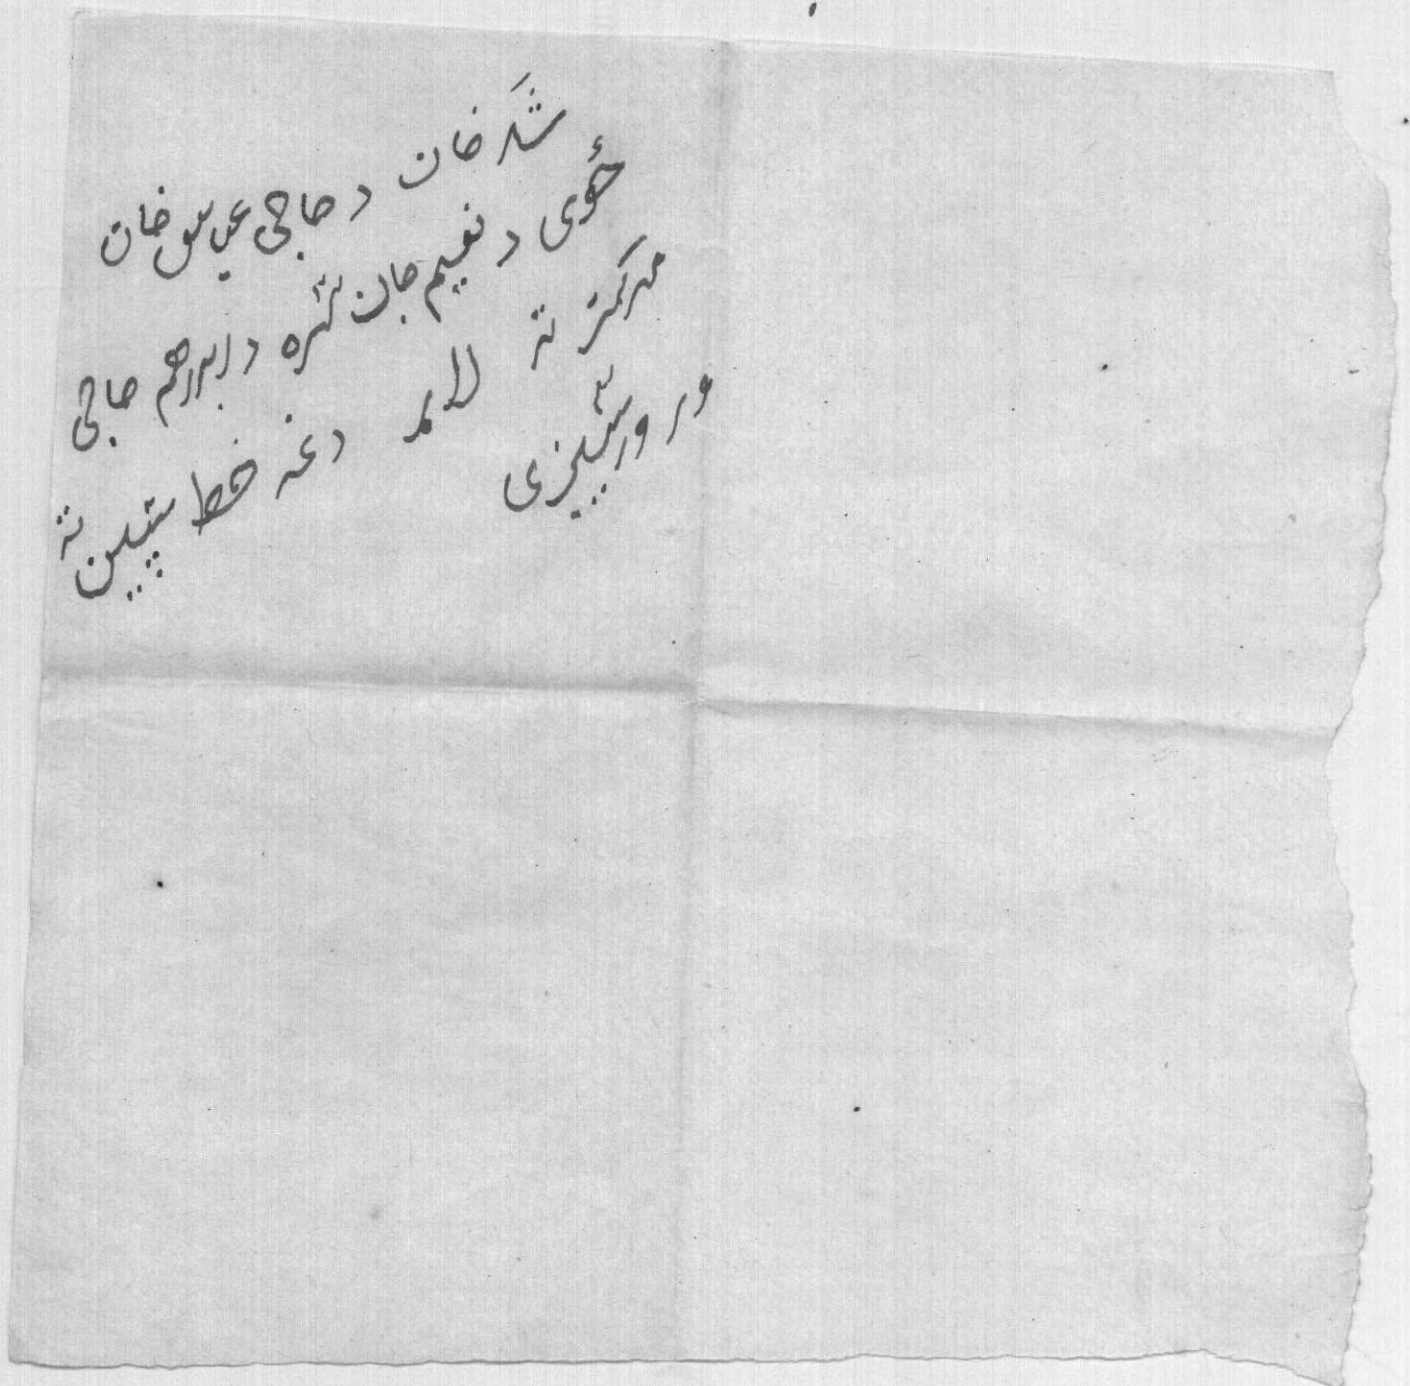 شکر خان د حاجی عباس خان
ځوی د نعیم جان سره د ابراهیم حاجی
مرکې ته لاړ دغه خط سپین ته
ور ورسیږی